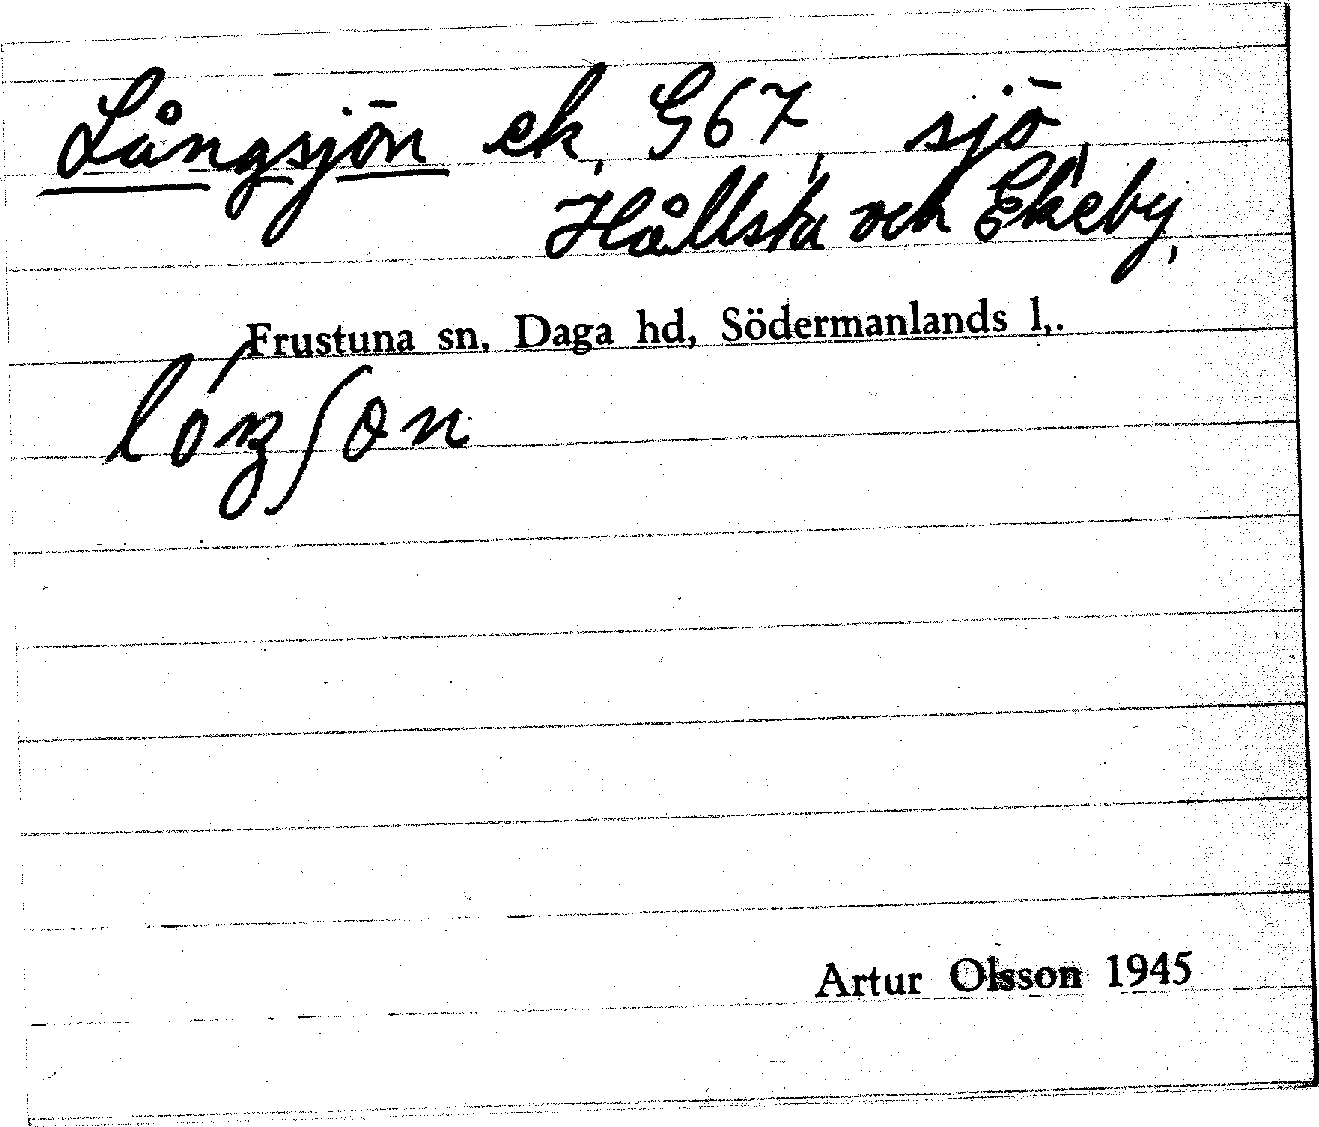 Långsjön ek, G67, sjö,
Hållsta och Ekeby,
Frustuna sn, Daga hd, Södermanlands l,.
Artur Olsson 1945